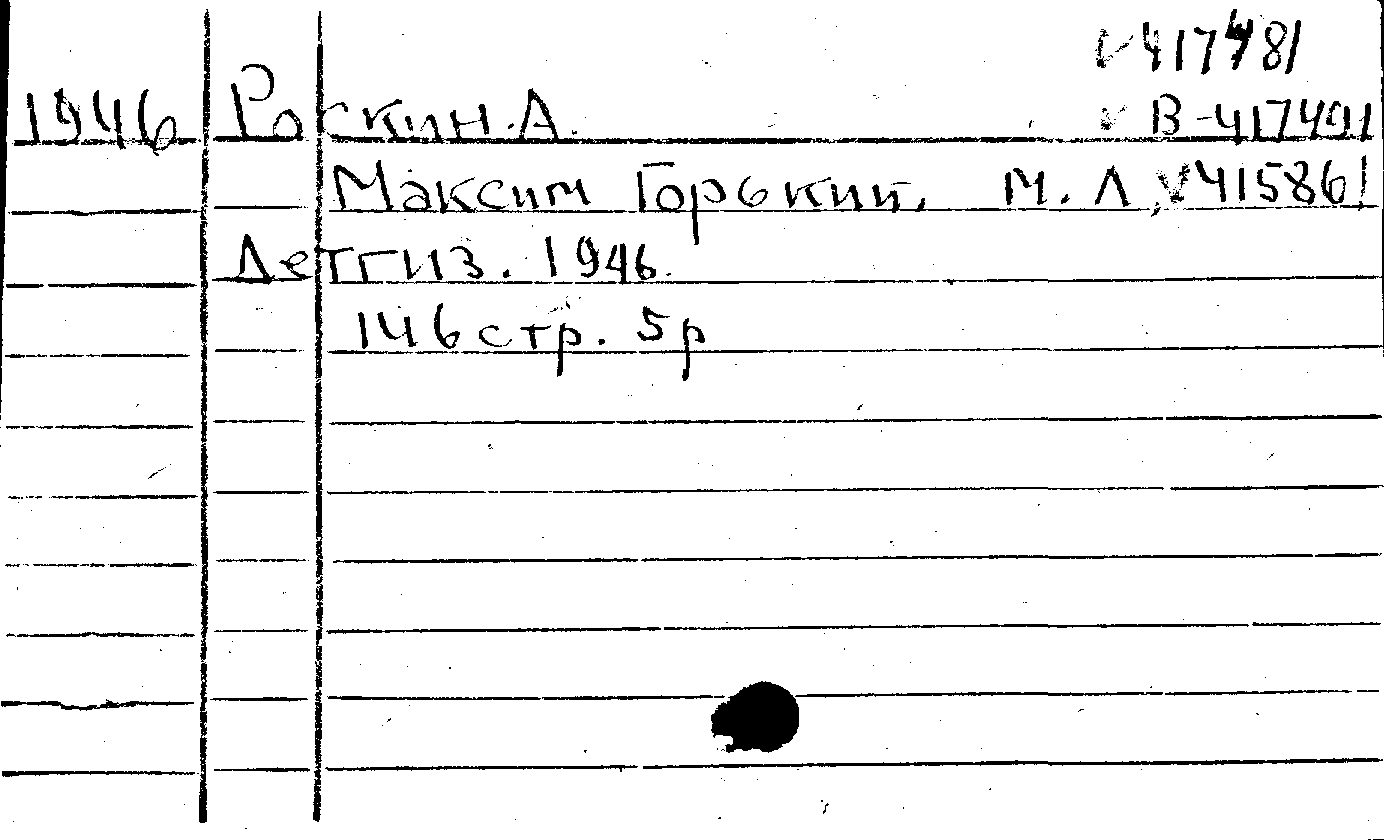 ✓ 417481
1946 Роскин.А. ✓ В-417491
Максим Горький. М. Л ✓415861
Детгиз. 1946.
146 стр. 5р